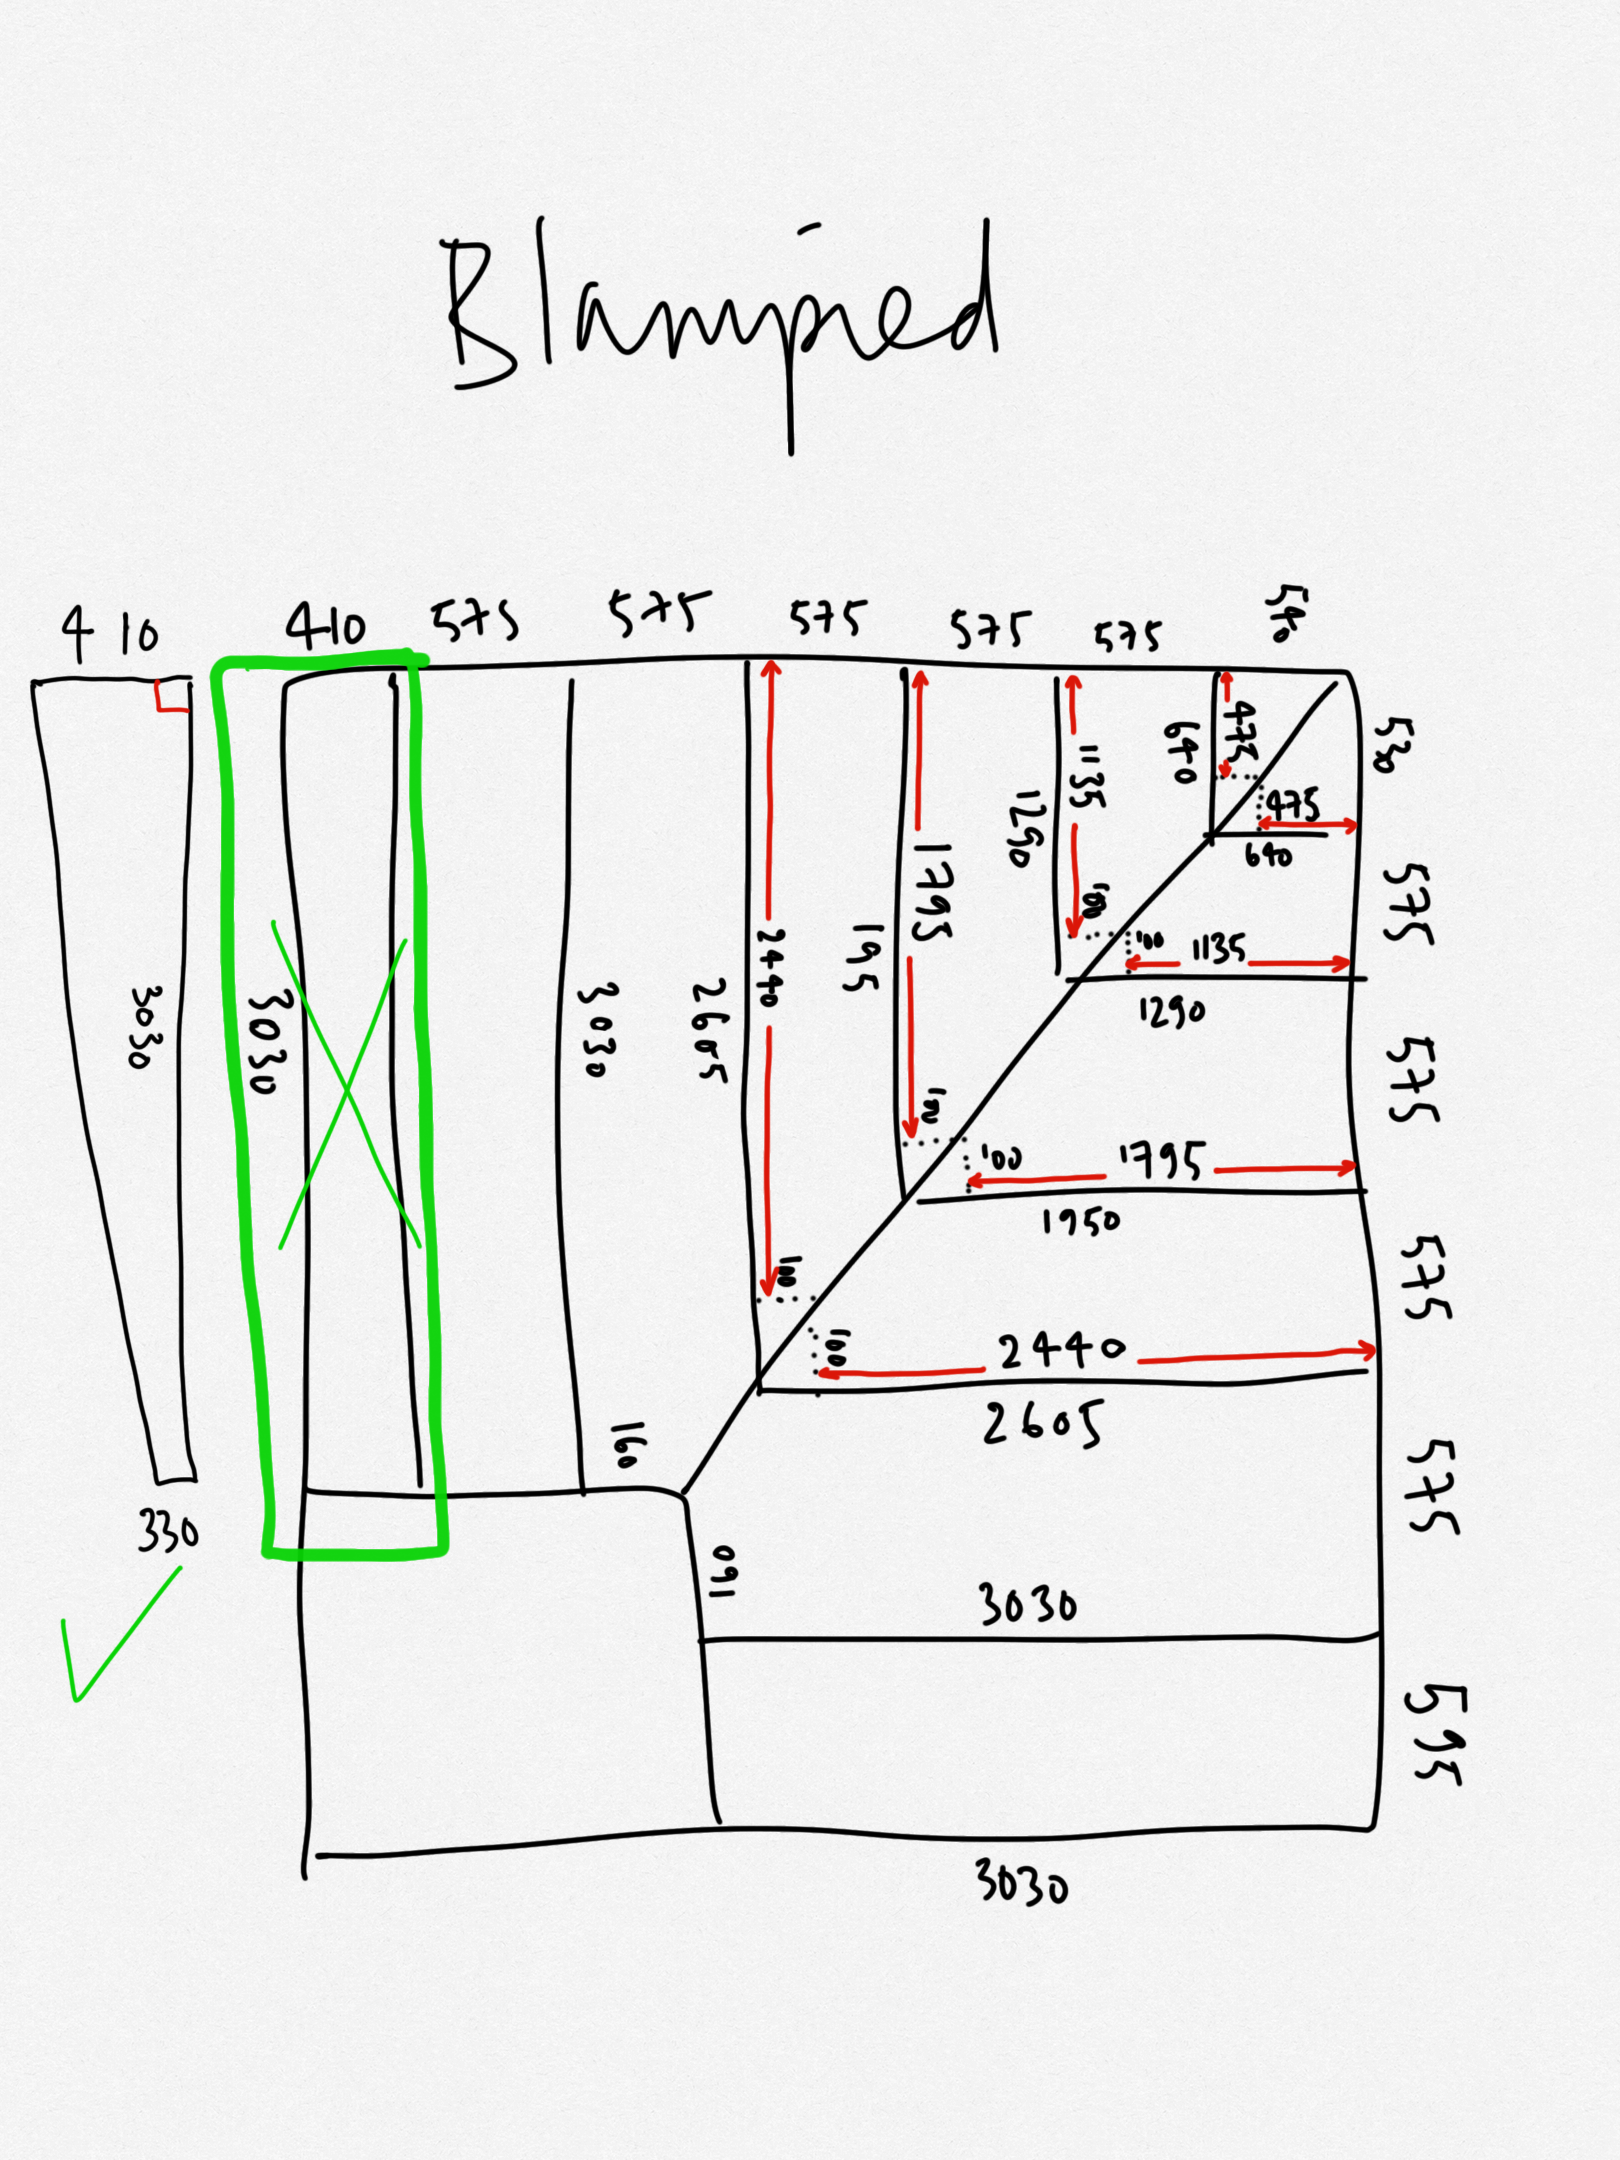 Blampied
4 10
410
575
575
575
575
575
540
530
475
640
475
640
1135
1290
100
100
1135
1290
575
1795
195
100
100
1795
1950
575
2440
2605
100
100
2440
2605
575
3030
3030
3030
160
160
575
330
3030
595
3030